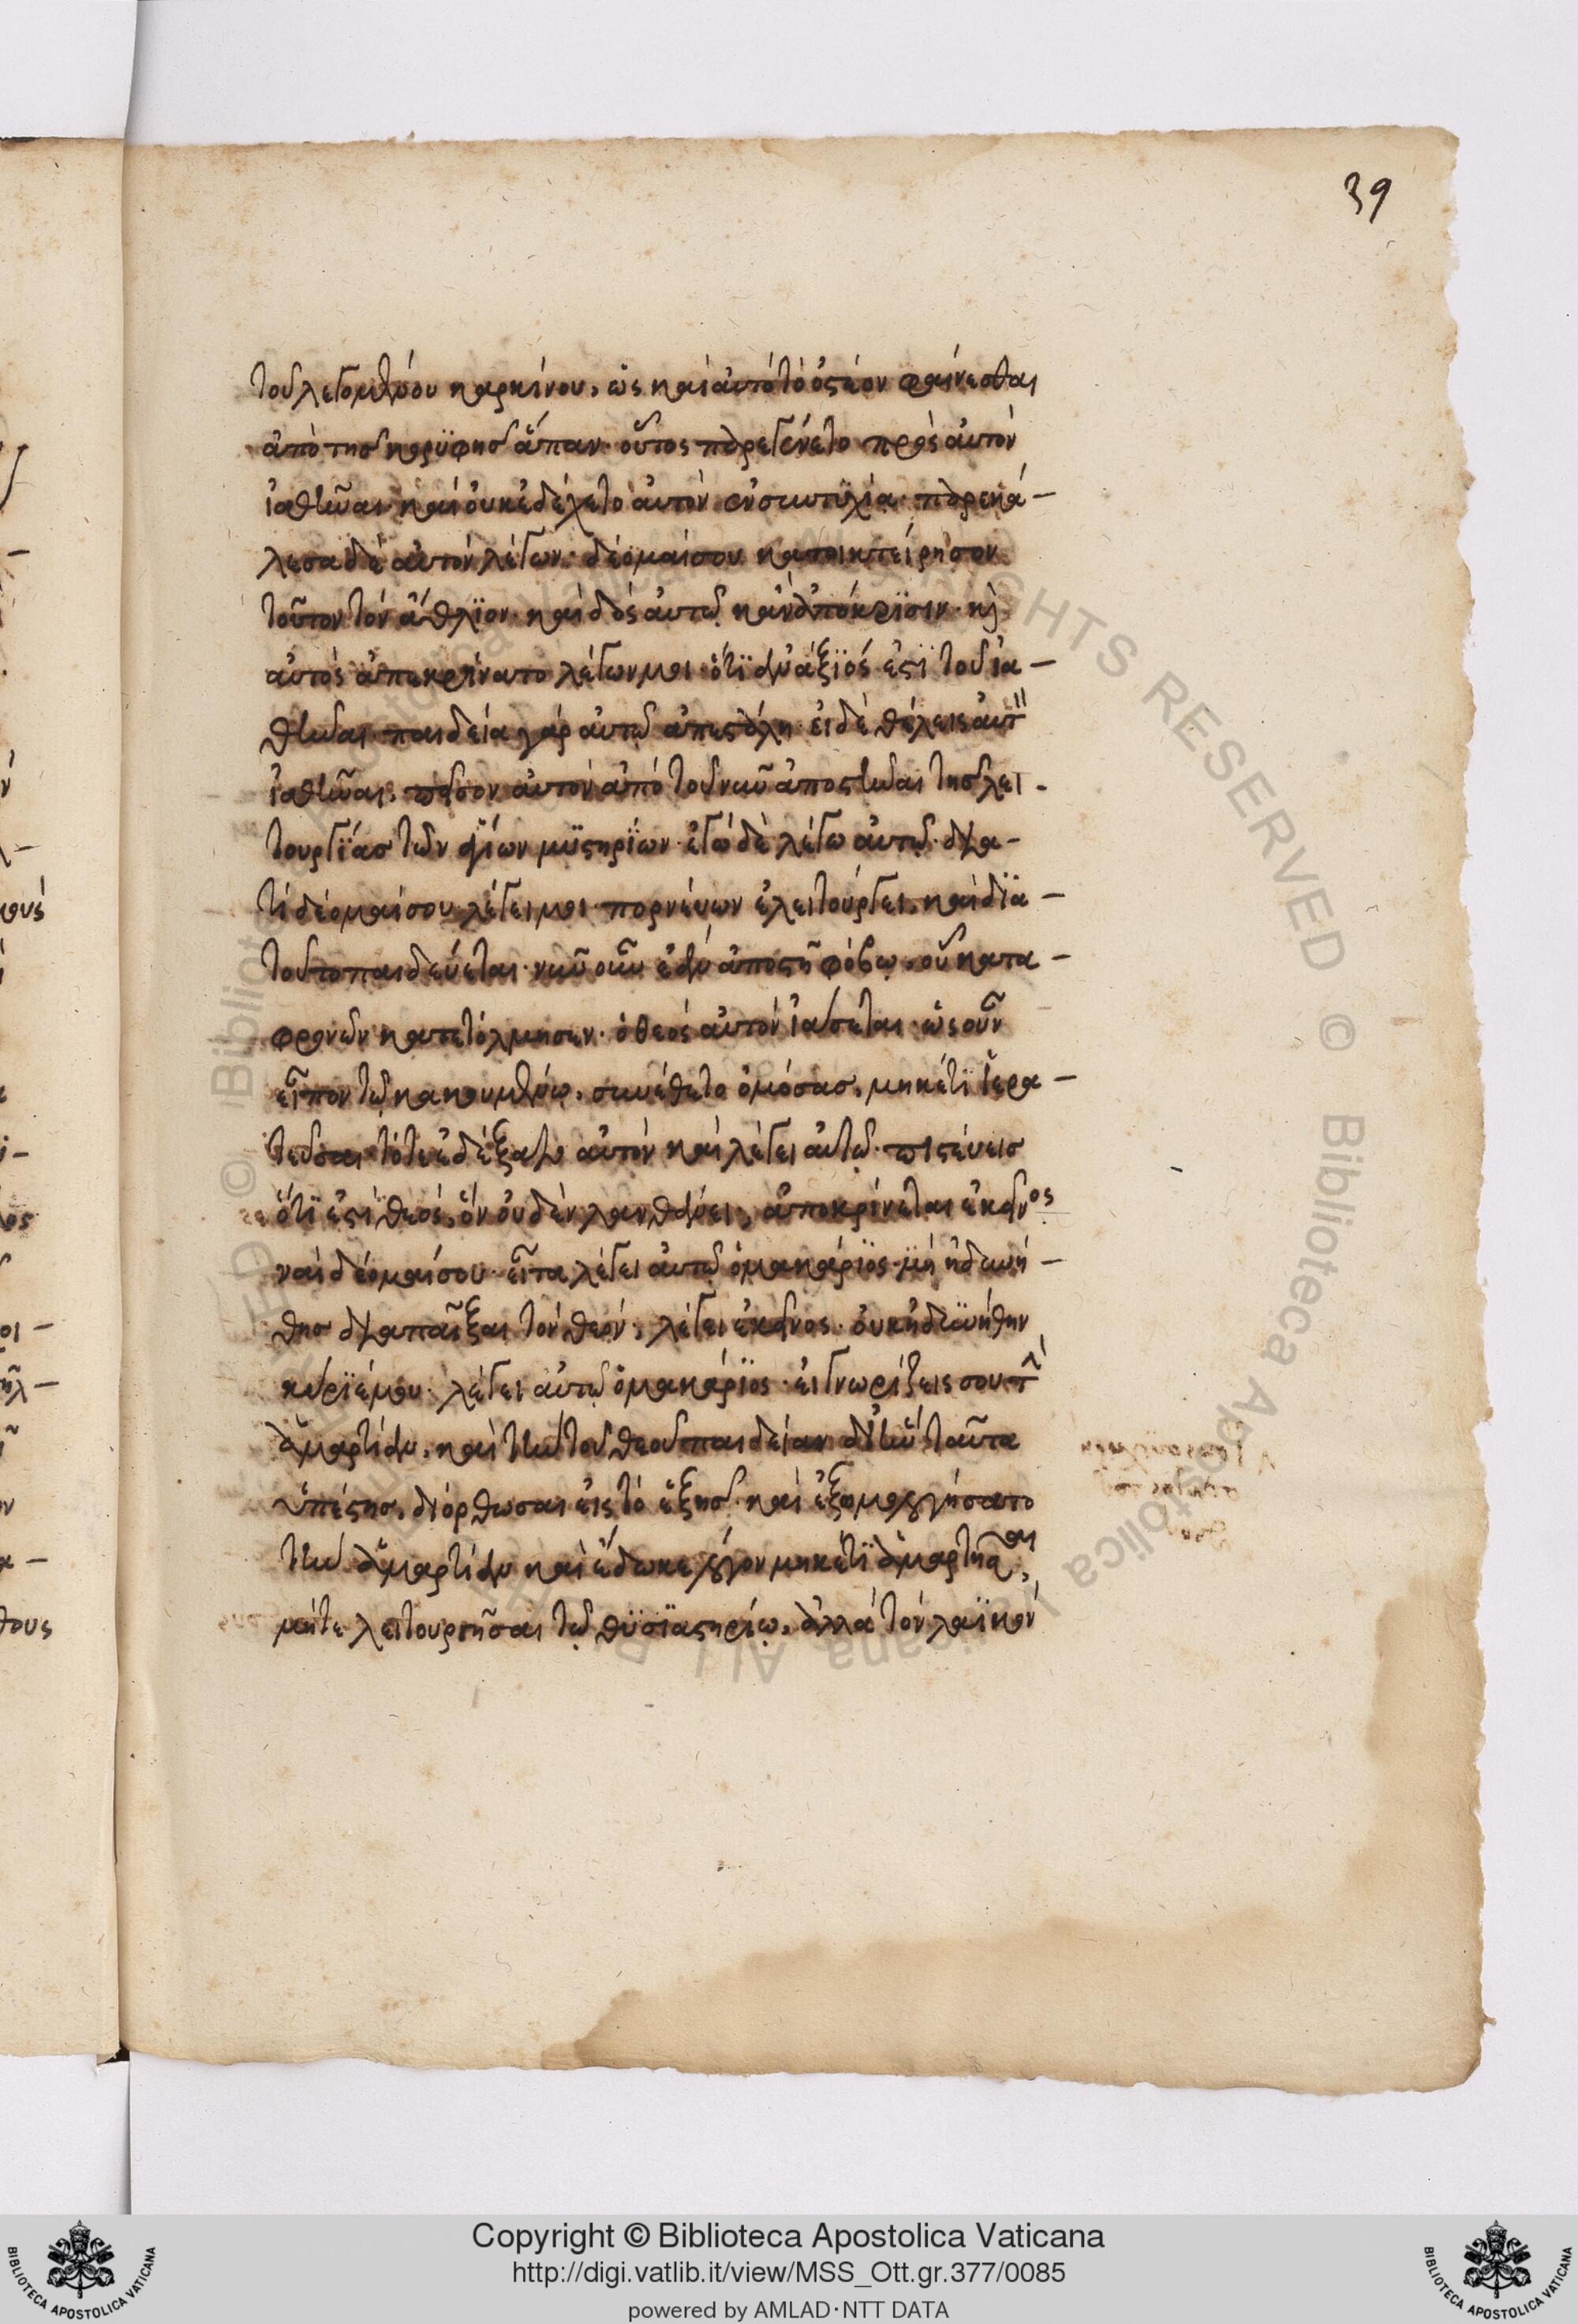 39
τοῦ λεγομένου καρκίνου, ὡς καὶ αὐτὸ τὸ ὀστέον φαίνεσθαι
ἀπὸ τῆς κορϋφῆς ἅπαν· οὗτος παρεγένετο πρὸς αὐτὸν
ἰαθῆναι· καὶ οὐκ ἐδέχετο αὐτὸν ἐν συντυχία· παρεκά-
λεσα δὲ αὐτὸν λέγων· δέομαί σου κατοικτείρησον
τοῦτον τὸν ἄθλϊον· καὶ δὸς αὐτῷ κἂν ἀπόκρϊσιν· κὶ
αὐτὸς ἀπεκρίνατο λέγων μοι· ὅτϊ ἀνάξϊός ἐστϊ τοῦ ἰα-
θῆναι· παιδεία γὰρ αὐτῷ ἀπεστάλη· εἰ δὲ θέλεις αὐτ
ἰαθῆναι, πεῖσον αὐτὸν ἀπὸ τοῦ νῦν ἀποστῆναι τῆς λει-
τουργΐας τῶν ἁγίων μϋστηρΐων· ἐγὼ δὲ λέγω αὐτῷ· δϊα-
τί δέομαί σου· λέγει μοι· πορνεύων ἐλειτούργει, καὶ δϊὰ-
τοῦτο παιδεύεται· νῦν οὖν ἐὰν ἀποστῆ φόβῳ, οὗ κατα-
φρονῶν κατετόλμησεν· ὁ θεὸς αὐτὸν ἰάσεται· ὡς οὖν
εἶπον τῷ κακουμένῳ, συνέθετο ὀμόσας, μηκέτϊ ἱερα-
τεῦσαι· τότε ἐδέξατο αὐτὸν καὶ λέγει αὐτῷ· πιστεύεις
ὅτϊ ἐστϊ θεός, ὃν οὐδὲν λανθάνει; ἀποκρίνεται ἐκεῖνος
ναὶ δέομαί σου· εἶτα λέγει αὐτῷ ὁ μακάρϊος· μὴ ἠδυνή-
θης δϊαπαῖξαι τὸν θεόν; λέγει ἐκεῖνος· οὐκ ἠδυνήθην
κύρϊέ μου· λέγει αὐτῷ ὁ μακάρϊος· εἰ γνωρίζεις σου τ
ἁμαρτίαν, καὶ τὴν τοῦ θεοῦ παιδείαν δι' ἣν ταῦτα
ὑπέστης, διόρθωσαι εἰς τὸ ἑξῆς· καὶ ἐξωμολογήσατο
τὴν ἁμαρτίαν καὶ ἔδωκε λόγον μηκέτϊ ἁμαρτῆσαι,
μήτε λειτουργῆσαι τῷ θϋσϊαστηρίῳ, ἀλλὰ τὸν λαϊκὸν
Copyright © Biblioteca Apostolica Vaticana
http://digi.vatlib.it/view/MSS_Ott.gr.377/0085
powered by AMLAD·NTT DATA